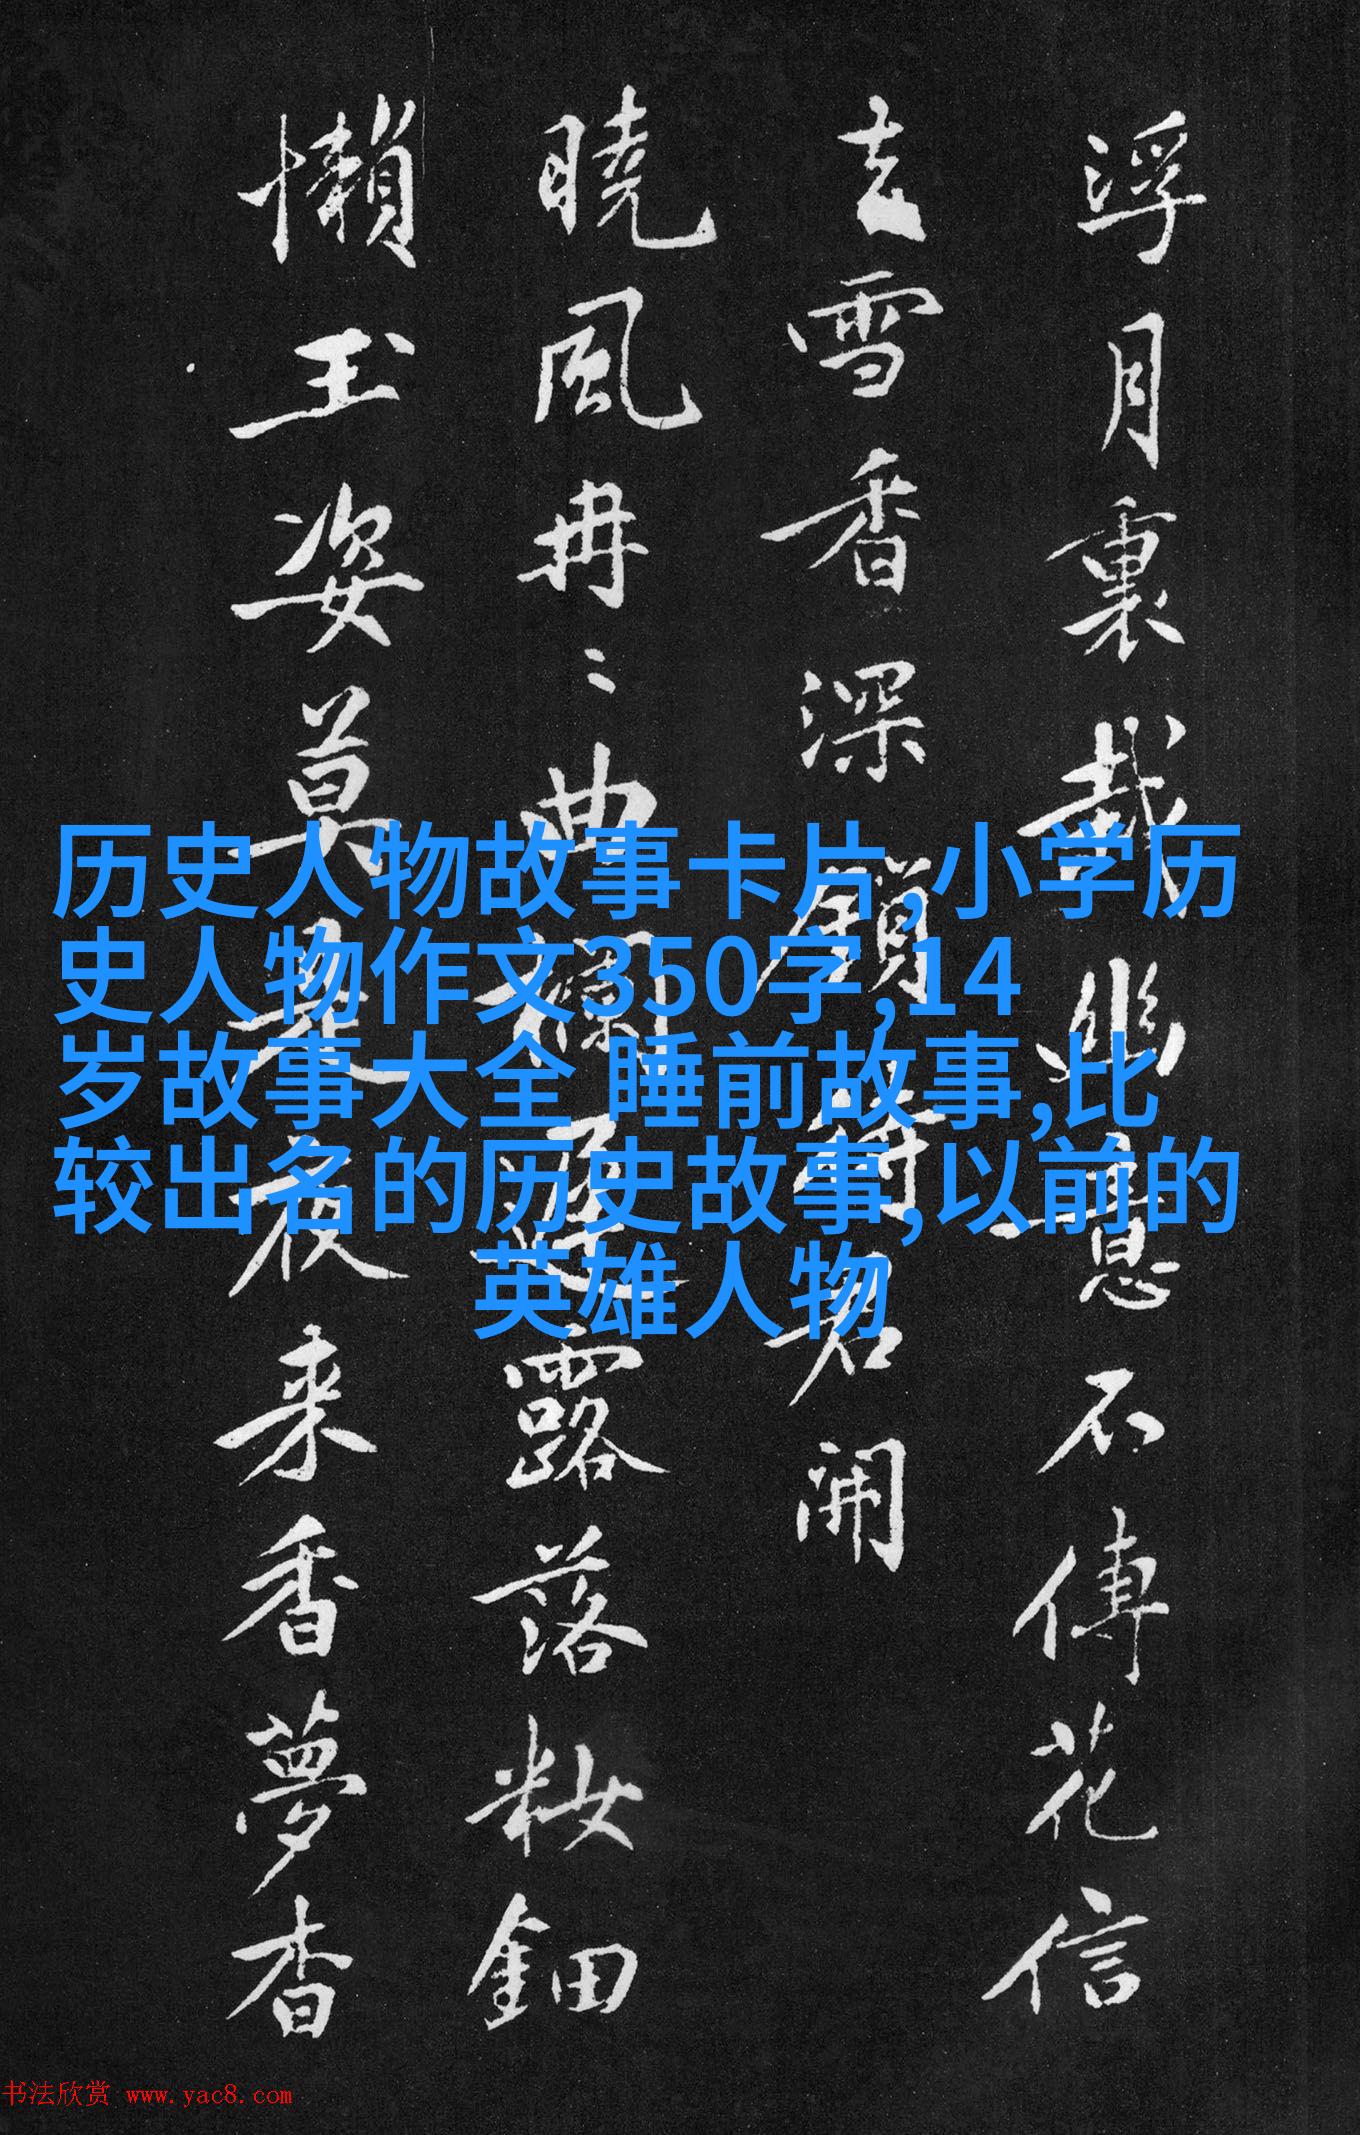 历史人物故事卡片,小学历
史人物作文350字,14
岁故事大全 睡前故事,比
较出名的历史故事,以前的
英雄人物
浮月裏幽意不傳花信
雪香深鎖待君開
曉風冉〻曲欄露落籹鈿
懶玉姿莫是夜来香夢杳
书法欣赏 www.yac8.com